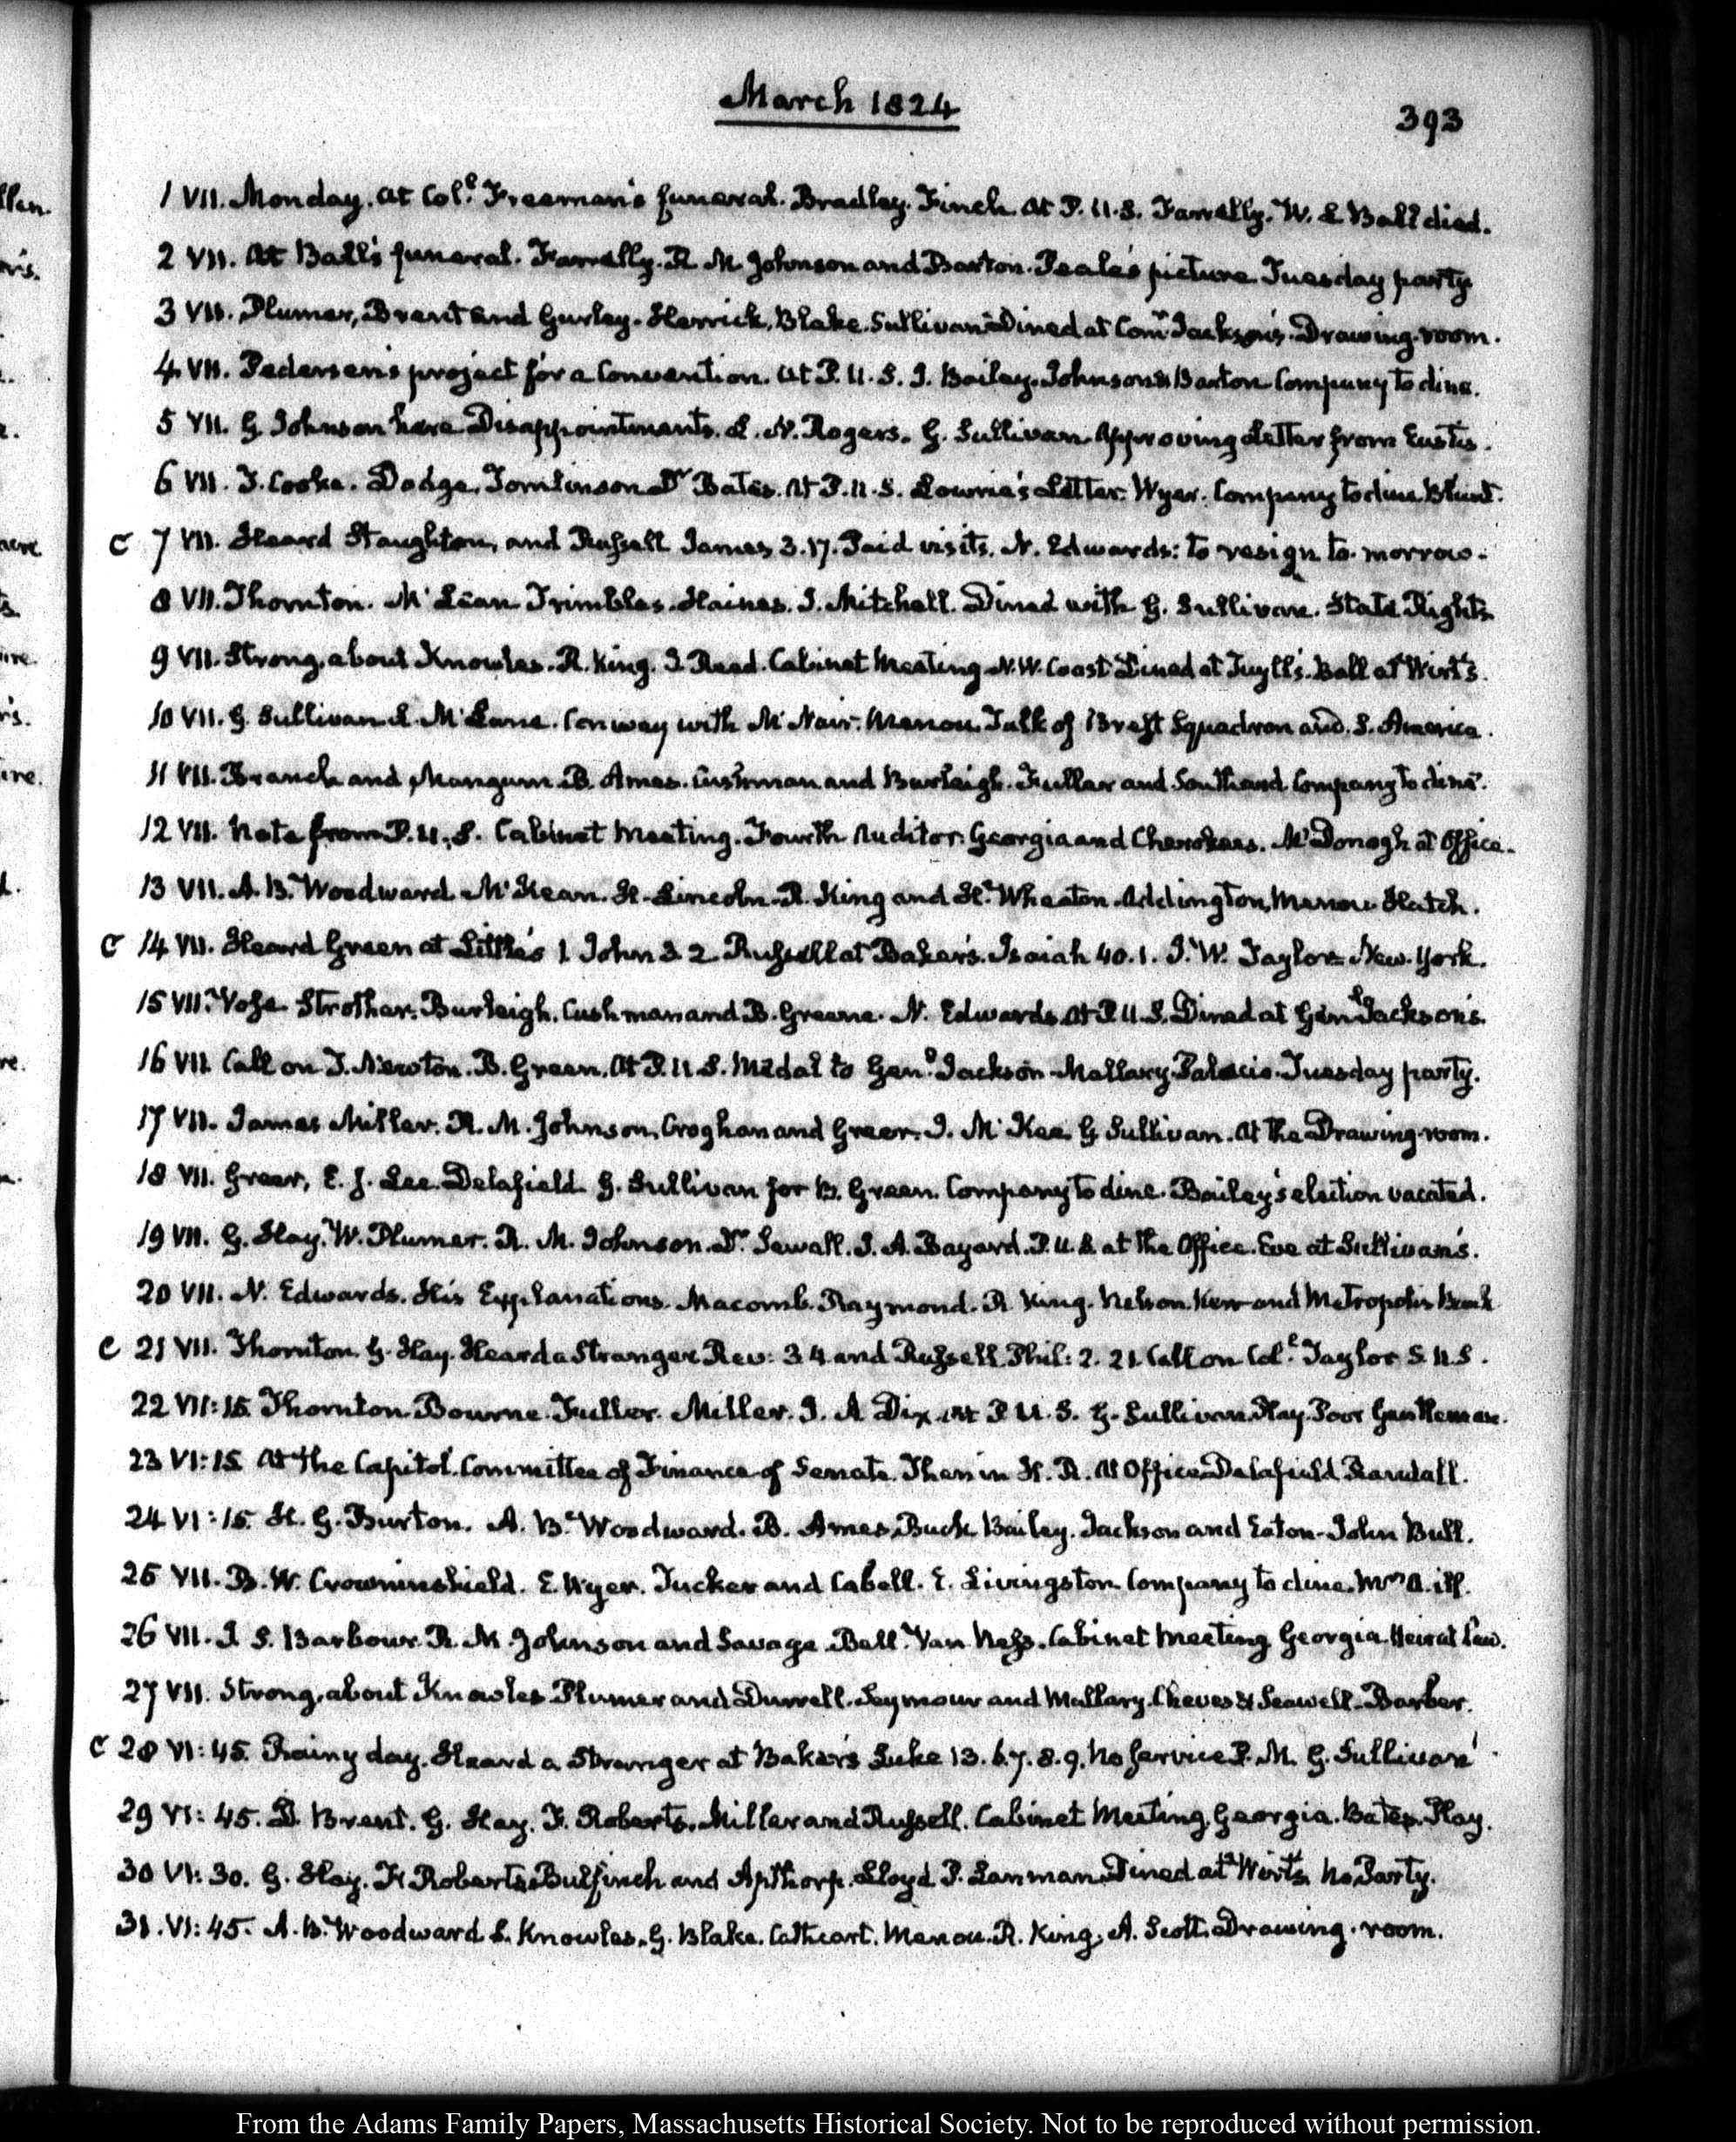 March 1824
393
1 VII. Monday. at Col.l Freeman's funeral. Bradley. Finch. at P. U.S. Farrelly. W. L Ball died.
2 VII. At Ball's funeral. Farrelly. R. M. Johnson and Barton. Peale's picture Tuesday party
3 VII. Plumer, Brent and Gurley. Herrick, Blake. Sullivan Dined at Com.r Jackson's. Drawing-room.
4 VII. Pedersen's project for a Convention. at P. U. S. J. Bailey. Johnson & Barton Company to dine.
5 VII. G. Johnson here Disappointments. L. N. Rogers. G. Sullivan. Approving Letter from Eustis.
6 VII. J. Cooke. Dodge, Tomlinson Dr Bates. At P. U. S. Lowrie's Letter. Wyer. Company to dine Blunt.
C 7 VII. Heard Staughton, and Russell James 3.17. Paid visits. N. Edwards: to resign to-morrow.
8 VII. Thornton. McLean Trimbles. Haines. J. Mitchell. Dined with G. Sullivan. State Rights
9 VII. Strong, about Knowles. R. King. J. Reed. Cabinet Meeting N.W. Coast Dined at Tuyll's. Ball at Wirt's.
10 VII. G. Sullivan L. McLane. Conway with McNair. Menou. Talk of Brest Squadron and S. America.
11 VII. Branch and Mangum B. Ames. Cushman and Burleigh. Fuller and Southard Company to dine.
12 VII. Note from P. U. S. Cabinet Meeting. Fourth Auditor. Georgia and Cherokees. McDonogh at Office.
13 VII. A. B. Woodward McKean. H. Lincoln. R. King and H. Wheaton. Addington, Menou Hatch.
C 14 VII. Heard Green at Little's 1. John 3. 2 Russell at Baker's. Isaiah 40.1. J. W. Taylor New-York.
15 VII. Vose Strother. Burleigh. Cushman and B. Greene. N. Edwards At P. U. S. Dined at Gen.l Jackson's.
16 VII. Call on T. Newton. B. Green. At P. U. S. Medal to Gen.l Jackson Mallary Palacio. Tuesday party.
17 VII. James Miller. R. M. Johnson, Croghan and Greer. J. McKee. G. Sullivan. At the Drawing-room.
18 VII. Greer, E. J. Lee. Delafield G. Sullivan for B. Green. Company to dine. Bailey's election vacated.
19 VII. G. Hay. W. Plumer. R. M. Johnson. Dr Sewall. J. A. Bayard. P. U. S. at the Office. Eve at Sullivan's.
20 VII. N. Edwards. His Explanations. Macomb. Raymond. R. King. Nelson. Kerr and Metropolis Bank
C 21 VII. Thornton. G. Hay. Heard a Stranger Rev: 3 4 and Russell Phil: 2. 21. Call on Col.l Taylor S. U.S.
22 VII:15. Thornton. Bourne. Fuller. Miller. J. A Dix. At P. U. S. G. Sullivan. Hay. Poor Gentleman.
23 VI:15. At the Capitol. Committee of Finance of Senate. Then in H. R. At Office Delafield. Randall.
24 VI:15. H. G. Burton. A. B. Woodward. B. Ames, Buck Bailey. Jackson and Eaton. John Bull.
25 VII. B. W. Crowninshield. E. Wyer. Tucker and Cabell. E. Livingston. Company to dine. Mrs A. ill.
26 VII. J S. Barbour. R. M. Johnson and Savage. Ball. Van Ness. Cabinet Meeting Georgia. Heir at Law.
27 VII. Strong, about Knowles Plumer and Durell. Seymour and Mallary. Cheves & Seawell. Barber.
C 28 VI:45. Rainy day. Heard a Stranger at Baker's Luke 13. 6.7.8.9. No Service P. M. G. Sullivan
29 VI:45. D. Brent. G. Hay. F. Roberts. Miller and Russell. Cabinet Meeting. Georgia. Bates. Play.
30 VI:30. G. Hay. F. Roberts. Bulfinch and Apthorp. Lloyd P. Lanman Dined at Wirt's. No Party.
31. VI:45. A. B. Woodward S. Knowles. G. Blake. Cathcart. Menou. R. King. A. Scott. Drawing-room.
From the Adams Family Papers, Massachusetts Historical Society. Not to be reproduced without permission.